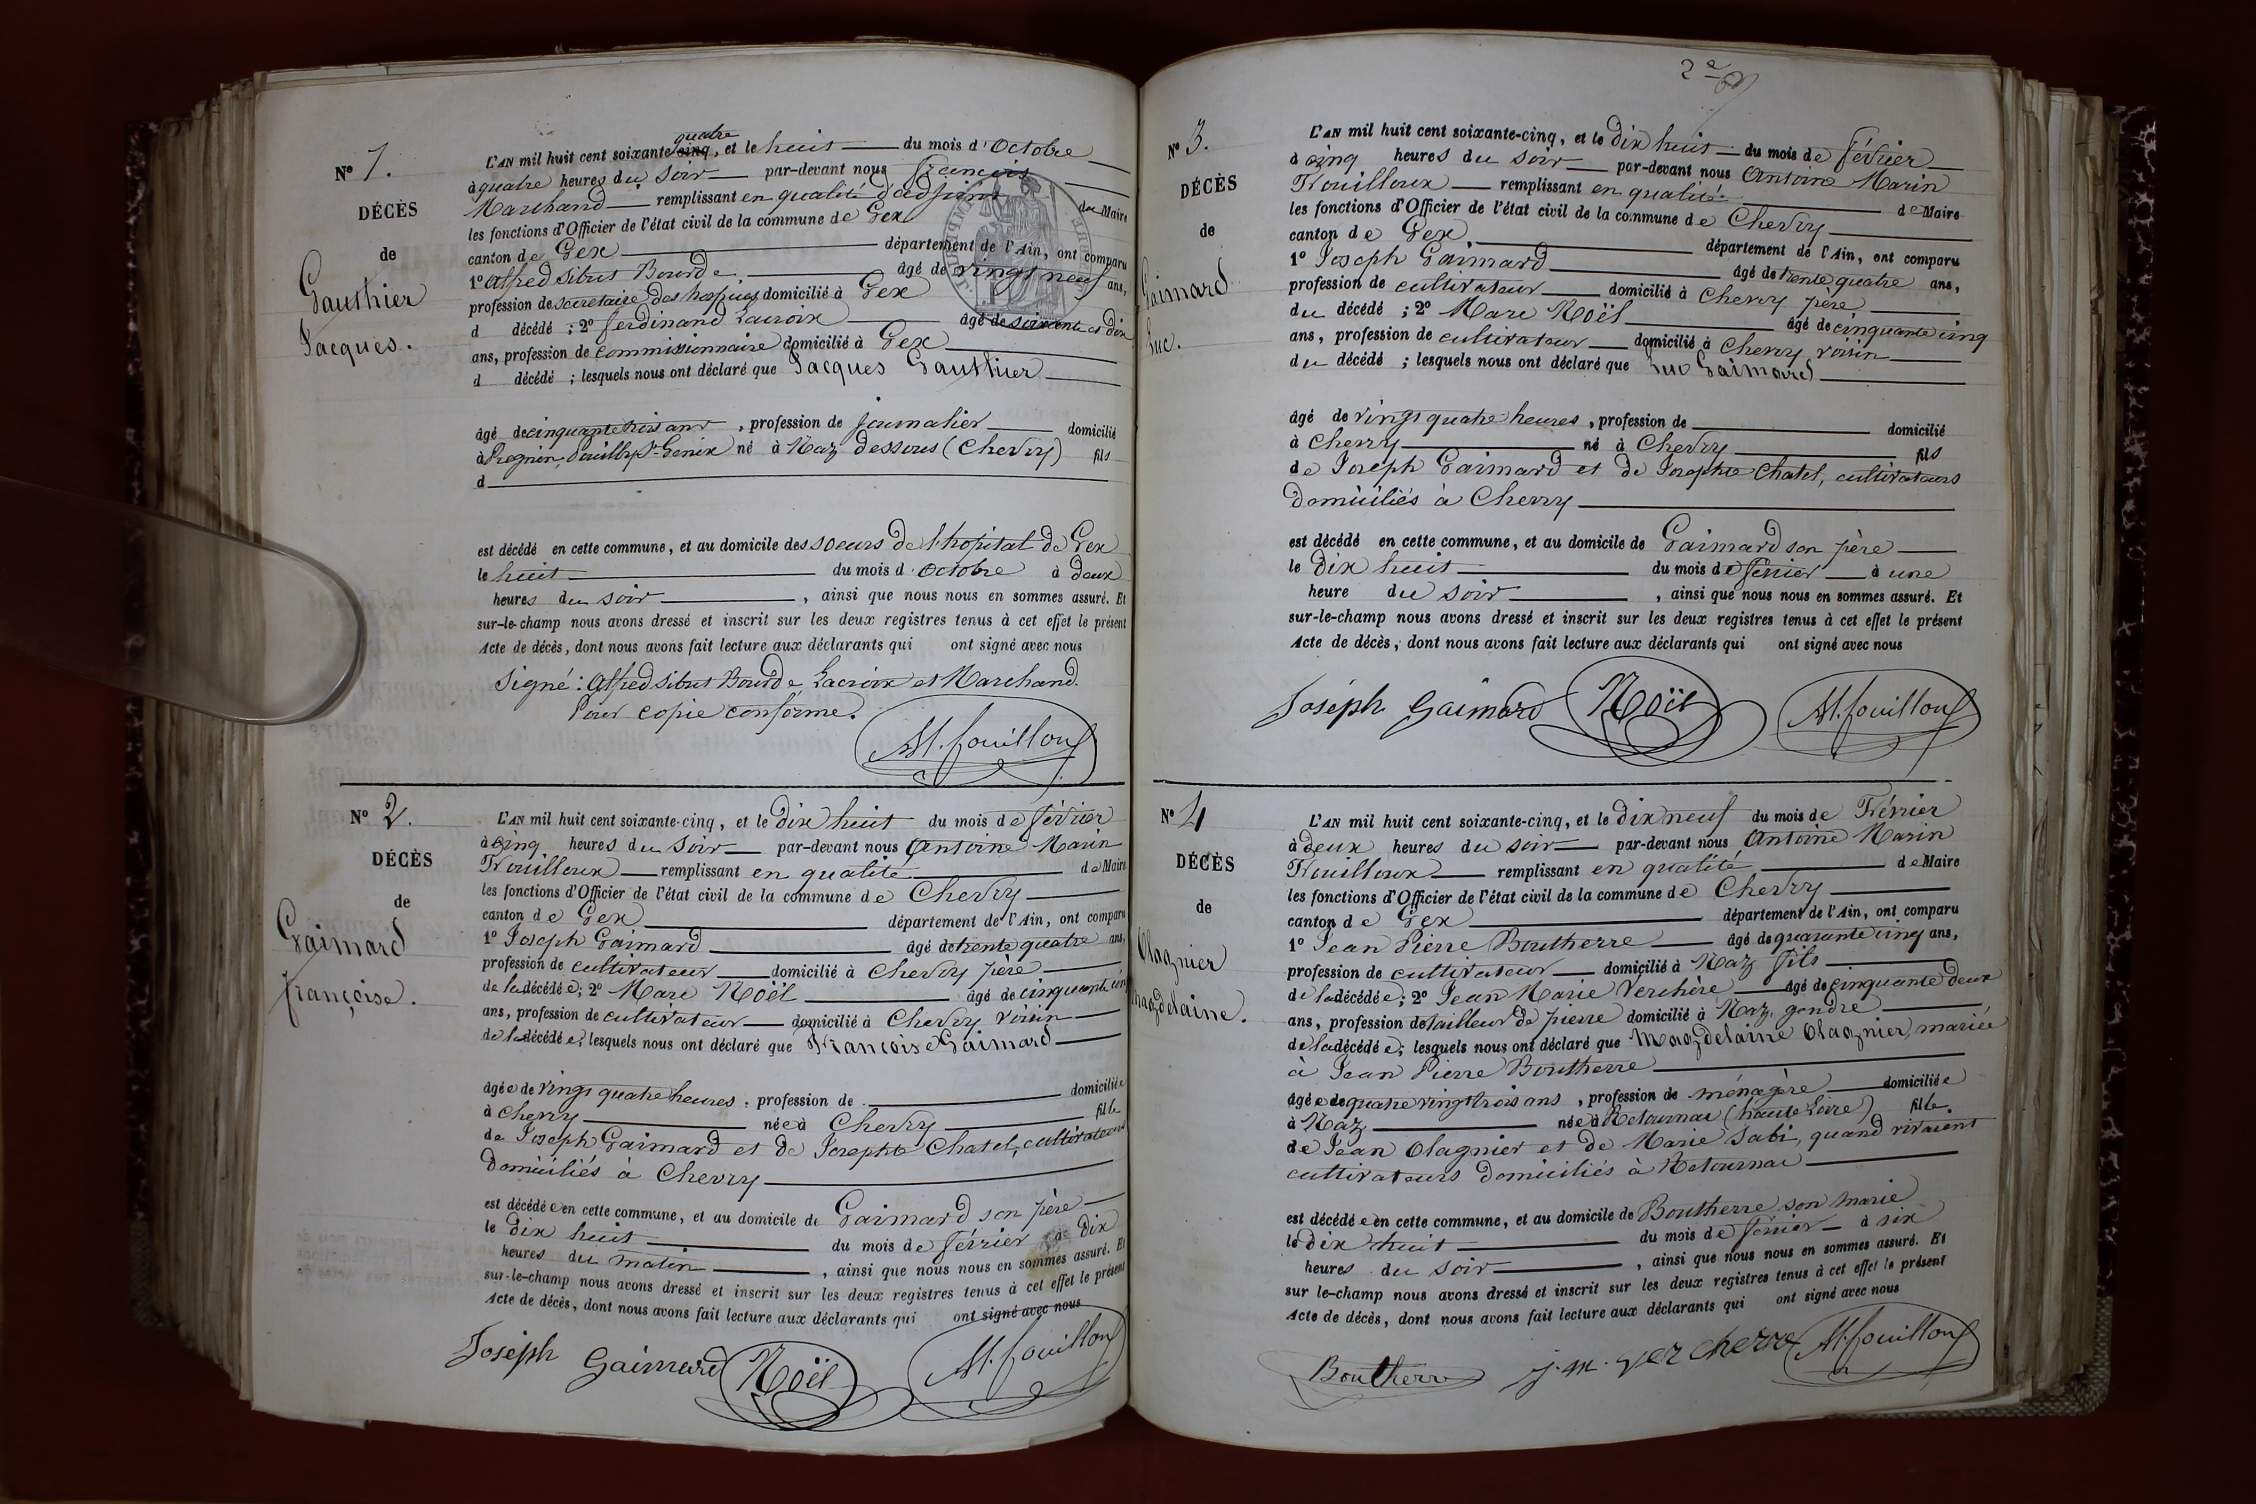 N° 1.
DÉCÈS
de
Gauthier
Jacques.
quatre
L'AN mil huit cent soixante cinq, et le huit du mois d'Octobre
à quatre heures du soir par-devant nous François
Marchand remplissant en qualité d'adjoint du Maire
les fonctions d'Officier de l'état civil de la commune de Gex
canton de Gex département de l'Ain, ont comparu
1° Alfred Sibut Bourde âgé de vingt neuf ans,
profession de secretaire des hospices domicilié à Gex
d décédé ; 2° ferdinand Lacroix âgé de soixante et dix
ans, profession de commissionnaire domicilié à Gex
d décédé ; lesquels nous ont déclaré que Jacques Gauthier
âgé de cinquante trois ans, profession de journalier domicilié
à Pregnin, Pouilly St Genix né à Naz dessous (Chevry) fils
d
est décédé en cette commune, et au domicile des soeurs de l'hopital de Gex
le huit du mois d'octobre à deux
heures du soir, ainsi que nous nous en sommes assuré. Et
sur-le-champ nous avons dressé et inscrit sur les deux registres tenus à cet effet le présent
Acte de décès, dont nous avons fait lecture aux déclarants qui ont signé avec nous
Signé : Alfred Sibut Bourde Lacroix et Marchand.
Pour copie conforme.
M. fouilloux
N° 2.
DÉCÈS
de
Gaimard
françoise.
L'AN mil huit cent soixante-cinq, et le dix huit du mois de février
à cinq heures du soir par-devant nous Antoine Marin
Frouilloux remplissant en qualité de Maire
les fonctions d'Officier de l'état civil de la commune de Chevry
canton de Gex département de l'Ain, ont comparu
1° Joseph Gaimard âgé de trente quatre ans,
profession de cultivateur domicilié à Chevry père
de la décédée ; 2° Marc Noël âgé de cinquante cinq
ans, profession de cultivateur domicilié à Chevry voisin
de la décédée ; lesquels nous ont déclaré que Françoise Gaimard
âgée de vingt quatre heures, profession de domiciliée
à Chevry née à Chevry fille
de Joseph Gaimard et de Josephte Chatel, cultivateurs
domiciliés à Chevry
est décédée en cette commune, et au domicile de Gaimard son père
le dix huit du mois de février à dix
heures du matin, ainsi que nous nous en sommes assuré. Et
sur-le-champ nous avons dressé et inscrit sur les deux registres tenus à cet effet le présent
Acte de décès, dont nous avons fait lecture aux déclarants qui ont signé avec nous
Joséph Gaimard Noël M. fouilloux
2e
N° 3.
DÉCÈS
de
Gaimard
Luc.
L'AN mil huit cent soixante-cinq, et le dix huit du mois de février
à cinq heures du soir par-devant nous Antoine Marin
Frouilloux remplissant en qualité de Maire
les fonctions d'Officier de l'état civil de la commune de Chevry
canton de Gex département de l'Ain, ont comparu
1° Joseph Gaimard âgé de trente quatre ans,
profession de cultivateur domicilié à Chevry père
du décédé ; 2° Marc Noël âgé de cinquante cinq
ans, profession de cultivateur domicilié à Chevry voisin
du décédé ; lesquels nous ont déclaré que Luc Gaimard
âgé de vingt quatre heures, profession de domicilié
à Chevry né à Chevry fils
de Joseph Gaimard et de Josephte Chatel, cultivateurs
domiciliés à Chevry
est décédé en cette commune, et au domicile de Gaimard son père
le dix huit du mois de février à une
heure du soir, ainsi que nous nous en sommes assuré. Et
sur-le-champ nous avons dressé et inscrit sur les deux registres tenus à cet effet le présent
Acte de décès, dont nous avons fait lecture aux déclarants qui ont signé avec nous
Joséph Gaimard Noël M. fouilloux
N° 4
DÉCÈS
de
Olagnier
magdelaine.
L'AN mil huit cent soixante-cinq, et le dix neuf du mois de Février
à deux heures du soir par-devant nous Antoine Marin
Frouilloux remplissant en qualité de Maire
les fonctions d'Officier de l'état civil de la commune de Chevry
canton de Gex département de l'Ain, ont comparu
1° Jean Pierre Boutherre âgé de quarante cinq ans,
profession de cultivateur domicilié à Naz fils
de la décédée ; 2° Jean Marie Verchère âgé de cinquante deux
ans, profession de tailleur de pierre domicilié à Naz, gendre
de la décédée ; lesquels nous ont déclaré que Magdelaine Olagnier, mariée
à Jean Pierre Boutherre
âgée de quatre vingt trois ans, profession de ménagère domiciliée
à Naz née à Retournac (haute Loire) fille
de Jean Olagnier et de Marie Sabi, quand vivaient
cultivateurs domiciliés à Retournac
est décédée en cette commune, et au domicile de Boutherre son marie
le dix huit du mois de février à six
heures du soir, ainsi que nous nous en sommes assuré. Et
sur le-champ nous avons dressé et inscrit sur les deux registres tenus à cet effet le présent
Acte de décès, dont nous avons fait lecture aux déclarants qui ont signé avec nous
Boutherre j. m. verchere M. fouilloux